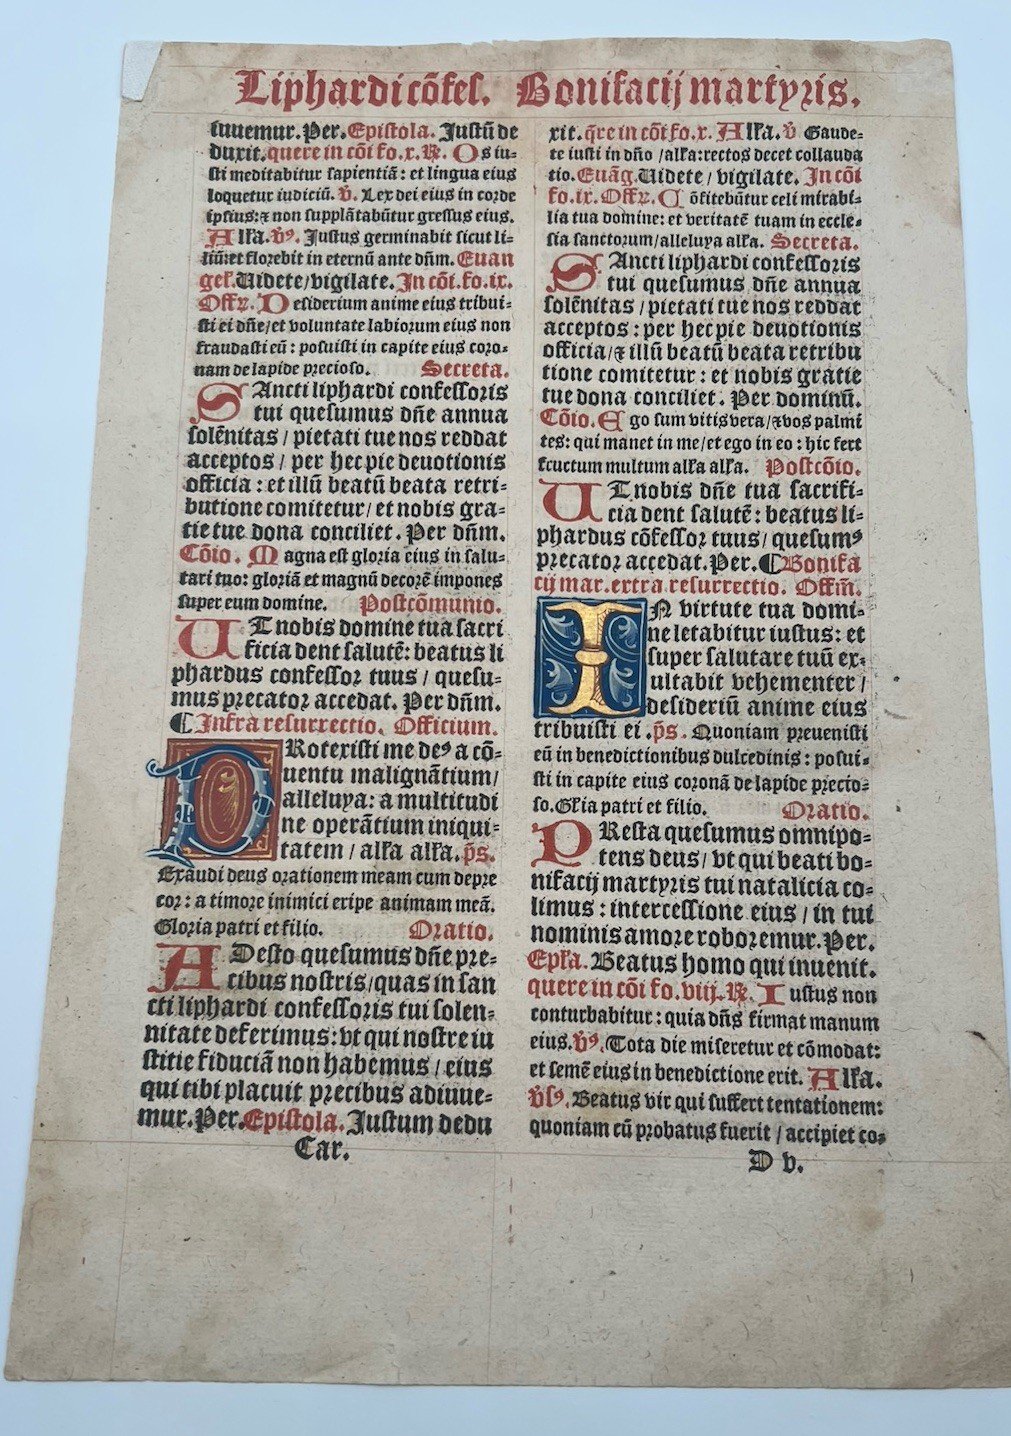 Liphardi cōfes. Bonifacij martyris.
iuuemur. Per. Epistola. Justū de
duxit. quere in cōi fo. x. ℟. Os iu-
sti meditabitur sapientiā: et lingua eius
loquetur iudiciū. ℣. Lex dei eius in corde
ipsius: ⁊ non supplātabūtur gressus eius.
Alľa. ℣ꝰ. Justus germinabit sicut li-
liū: et florebit in eternū ante dn̄m. Euan
geľ. Uidete/vigilate. In cōi. fo. ix.
Offꝛ. Desiderium anime eius tribui-
sti ei dn̄e/et voluntate labioꝛum eius non
fraudasti eū: posuisti in capite eius coꝛo-
nam de lapide pꝛecioso. Secreta.
SAncti liphardi confessoris
tui quesumus dn̄e annua
solēnitas / pietati tue nos reddat
acceptos / per hec pie deuotionis
officia: et illū beatū beata retri-
butione comitetur/ et nobis gra-
tie tue dona conciliet. Per dn̄m.
Cōio. Magna est gloria eius in salu-
tari tuo: gloriā et magnū decorē impones
super eum domine. Postcōmunio.
UT nobis domine tua sacri
ficia dent salutē: beatus li
phardus confessoꝛ tuus / quesu-
mus pꝛecatoꝛ accedat. Per dn̄m.
¶ Infra resurrectio. Officium.
PRotexisti me deꝰ a cō-
uentu malignātium/
alleluya: a multitudi
ne operātium iniqui-
tatem / alľa alľa. p̄s.
Exaudi deus oꝛationem meam cum depꝛe
coꝛ: a timoꝛe inimici eripe animam meā.
Gloꝛia patri et filio. Oratio.
ADesto quesumus dn̄e pꝛe-
cibus nostris/quas in san
cti liphardi confessoris tui solen-
nitate deferimus: vt qui nostre iu
stitie fiduciā non habemus / eius
qui tibi placuit pꝛecibus adiuue-
mur. Per. Epistola. Justum dedu
Car.
xit. q̄re in cōi fo. x. Alľa. ℣ Gaude-
te iusti in dn̄o /alľa: rectos decet collauda
tio. Euāg. Uidete/ vigilate. In cōi
fo. ix. Offꝛ. Cōfitebūtur celi mirabi-
lia tua domine: et veritatē tuam in eccle-
sia sanctoꝛum/alleluya alľa. Secreta.
SAncti liphardi confessoris
tui quesumus dn̄e annua
solēnitas / pietati tue nos reddat
acceptos: per hec pie deuotionis
officia/⁊ illū beatū beata retribu
tione comitetur: et nobis gratie
tue dona conciliet. Per dominū.
Cōio. Ego sum vitis vera/⁊ vos palmi
tes: qui manet in me/et ego in eo: hic fert
fructum multum alľa alľa. Postcōio.
UT nobis dn̄e tua sacrifi-
cia dent salutē: beatus li-
phardus cōfessoꝛ tuus/ quesumꝰ
pꝛecatoꝛ accedat. Per. ¶ Bonifa
cij mar. extra resurrectio. Offīm.
IN virtute tua domi-
ne letabitur iustus: et
super salutare tuū ex-
ultabit vehementer /
desideriū anime eius
tribuisti ei. p̄s. Quoniam pꝛeuenisti
eū in benedictionibus dulcedinis: posui-
sti in capite eius coꝛonā de lapide pꝛecio-
so. Gľia patri et filio. Oratio.
PResta quesumus omnipo-
tens deus/ vt qui beati bo-
nifacij martyris tui natalicia co-
limus: intercessione eius / in tui
nominis amoꝛe roboꝛemur. Per.
Epľa. Beatus homo qui inuenit.
quere in cōi fo. viij. ℟. Iustus non
conturbabitur: quia dn̄s firmat manum
eius. ℣ꝰ. Tota die miseretur et cōmodat:
et semē eius in benedictione erit. Alľa.
℣sꝰ. Beatus vir qui suffert tentationem:
quoniam cū pꝛobatus fuerit / accipiet co-
D v.